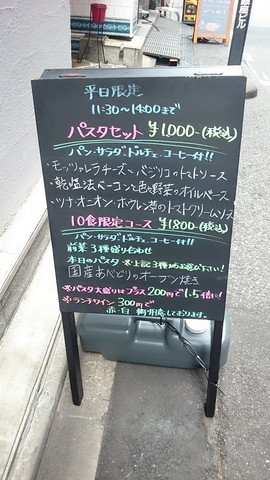 平日限定
11:30~14:00まで
パスタセット ¥1,000-(税込)
パン・サラダ・ドルチェ・コーヒー付!!
・モッツァレラチーズとバジリコのトマトソース
・乾塩法ベーコンと色々野菜のオイルベース
・ツナ・オニオン・ホウレン草のトマトクリームソース
10食限定コース ¥1,800-(税込)
パン・サラダ・ドルチェ・コーヒー付!!
前菜3種盛り合わせ
本日のパスタ ※上記3種よりお選び下さい!
国産あべどりのオーブン焼き
※パスタ大盛りはプラス200円で1.5倍に!
※ランチワイン 300円で
赤・白 御用意しております。